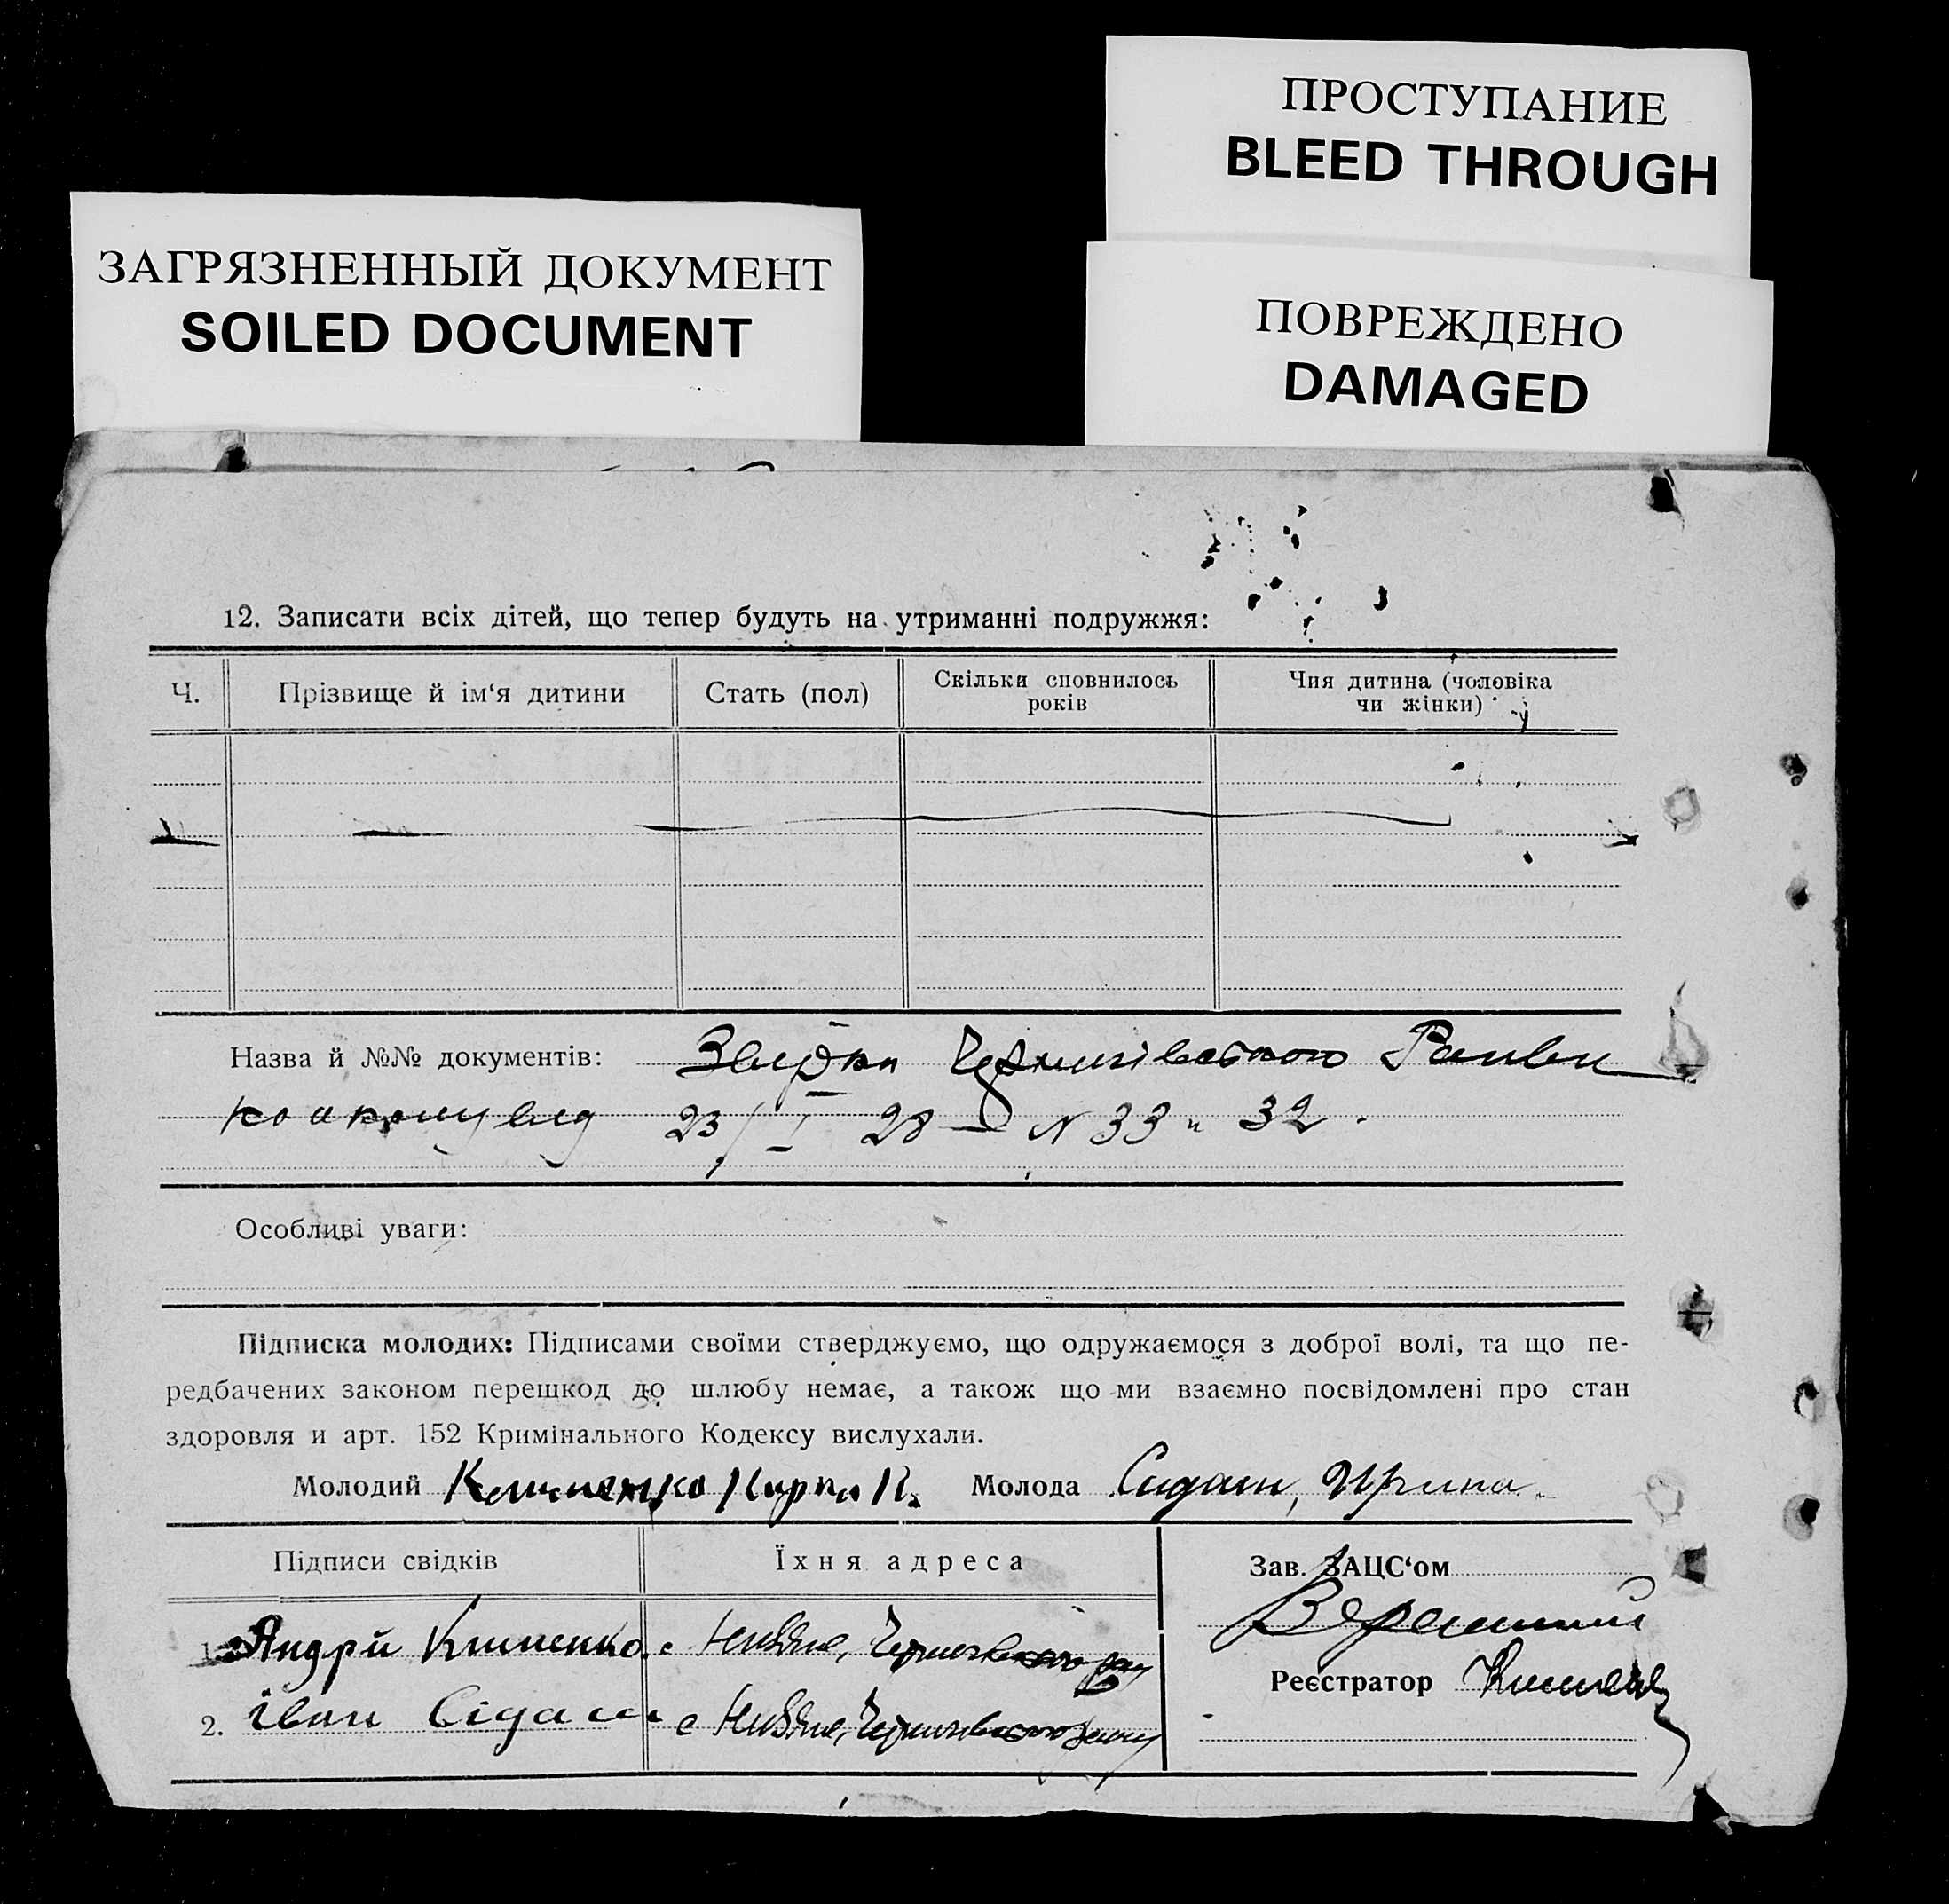 ПРОСТУПАНИЕ
BLEED THROUGH
ЗАГРЯЗНЕННЫЙ ДОКУМЕНТ
SOILED DOCUMENT
ПОВРЕЖДЕНО
DAMAGED
12. Записати всіх дітей, що тепер будуть на утриманні подружжя:
Ч. Прізвище й ім‘я дитини Стать (пол) Скільки сповнилось років Чия дитина (чоловіка чи жінки)
Назва й №№ документів: Звідки Чернигівского
23/I 28 N 33 и 32.
Особливі уваги:
Підписка молодих: Підписами своїми стверджуємо, що одружаємося з доброї волі, та що пе-
редбачених законом перешкод до шлюбу немає, а також що ми взаємно посвідомлені про стан
здоровля и арт. 152 Кримінального Кодексу вислухали.
Молодий Клименко Молода Сидаш, Ирина.
Підписи свідків Їхня адреса Зав. ЗАЦС‘ом
1. Андрій Клименко с
Реєстратор
2. іван Сідаш с